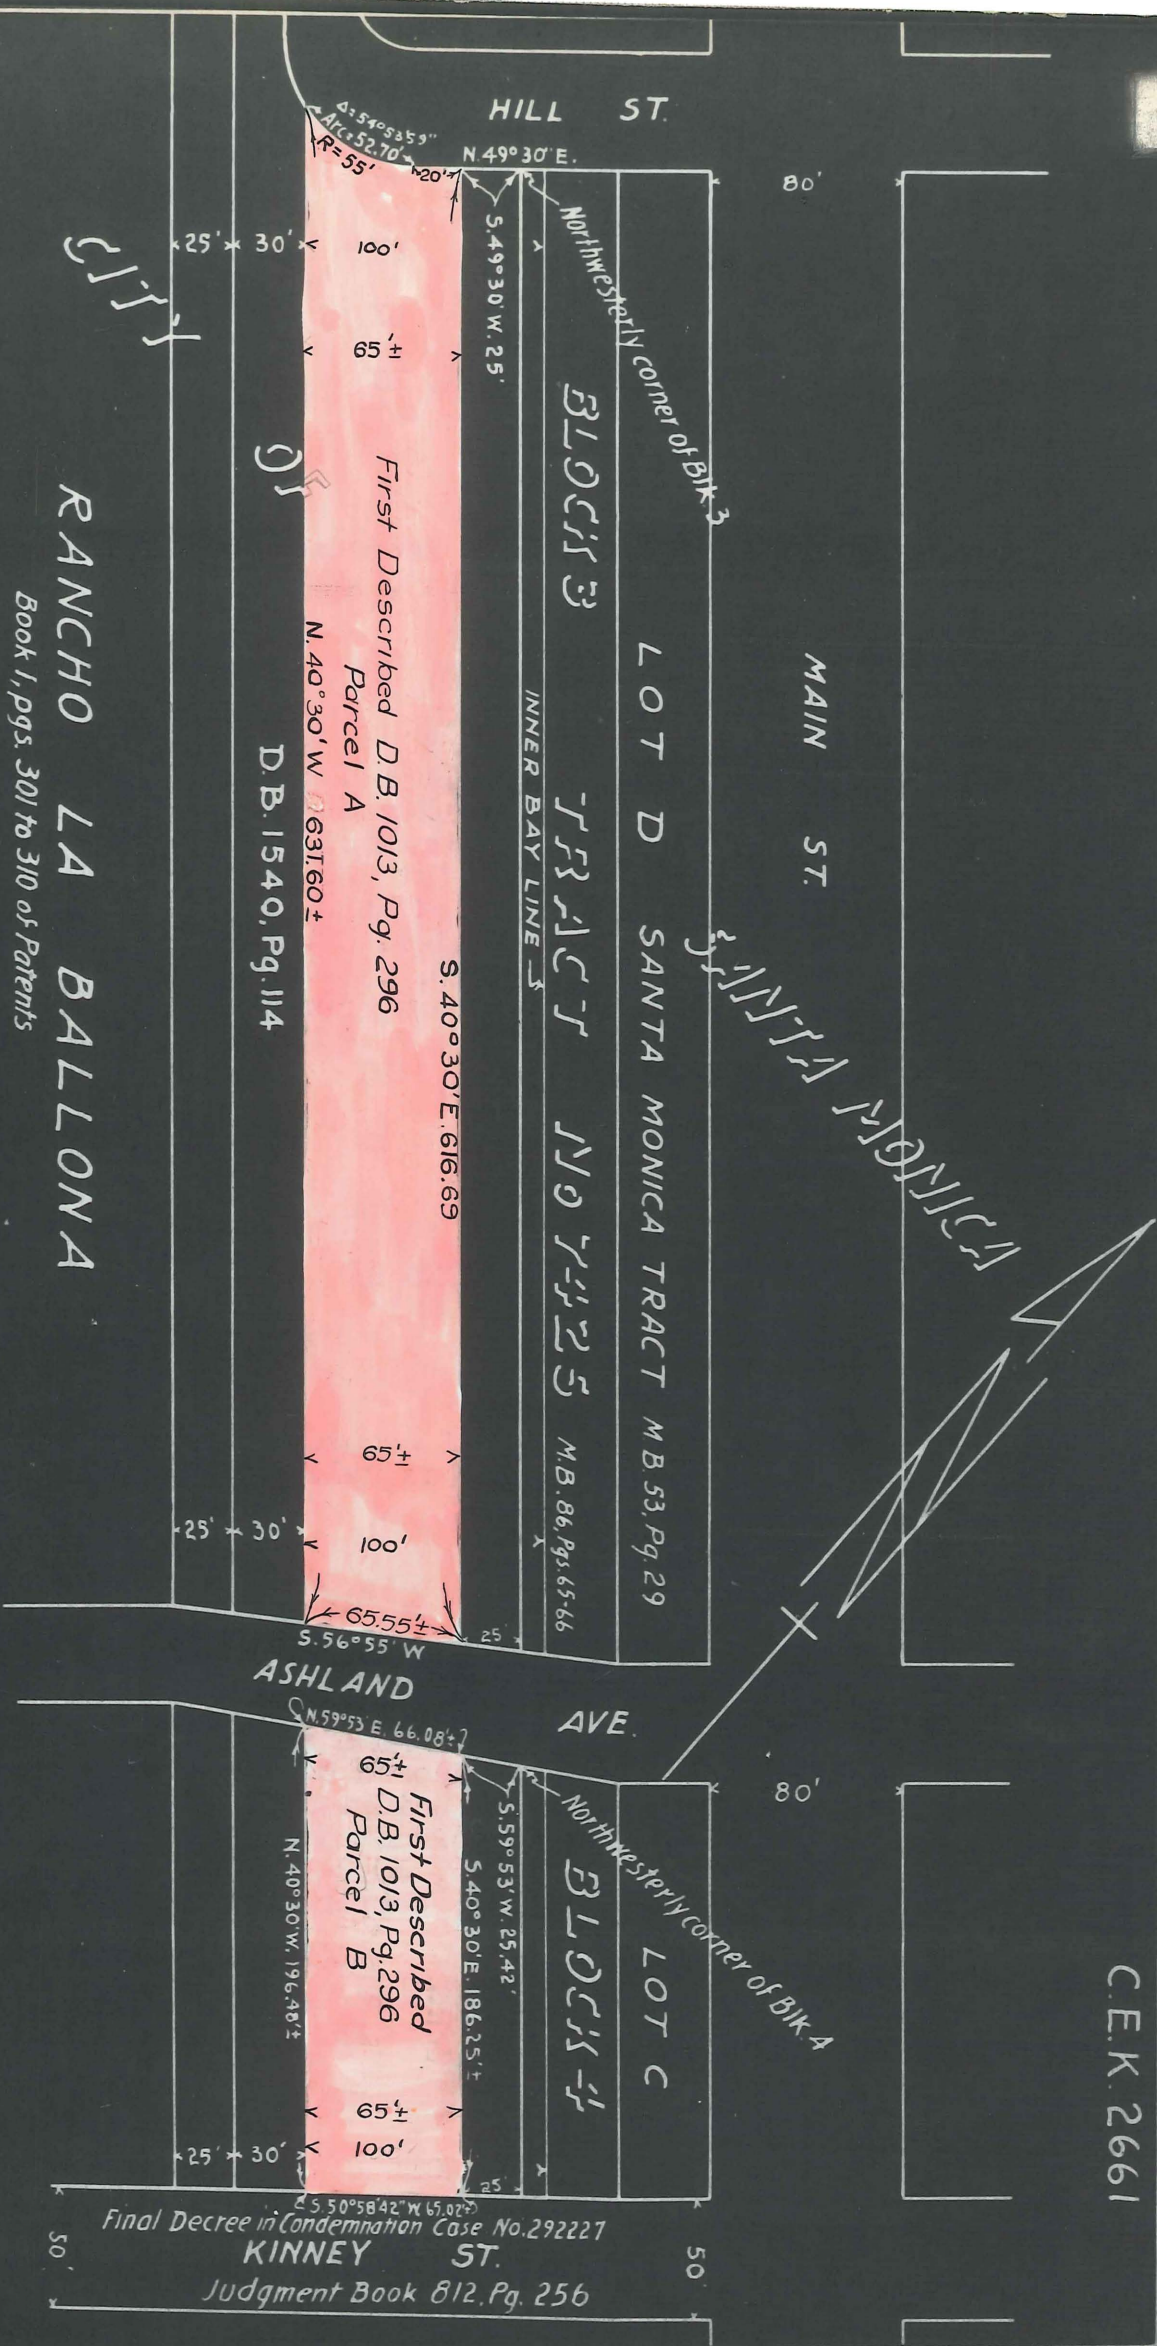 HILL ST.
Δ=54°53'59"
Arc=52.70'
R=55'
20'
N.49°30'E.
80'
S.49°30'W.25'
Northwesterly corner of Blk.3
25'
30'
100'
65'±
CITY
OF
SANTA MONICA
BLOCK 3
TRACT NO 7425 M.B.86,Pgs.65-66
LOT D SANTA MONICA TRACT M B.53, Pg.29
MAIN ST.
INNER BAY LINE
First Described D.B. 1013, Pg. 296
Parcel A
S.40°30'E.616.69
N.40°30'W 631.60±
D.B.1540,Pg.114
RANCHO LA BALLONA
Book 1, pgs. 301 to 310 of Patents
65'±
25'
30'
100'
65.55'±
25'
S.56°55' W
ASHLAND AVE.
N.59°53' E. 66.08'±
65'±
80'
S.59°53'W.25.42'
Northwesterly corner of Blk.4
First Described
D.B. 1013, Pg.296
Parcel B
S.40°30'E.186.25'±
N.40°30'W.196.48'±
BLOCK 4
LOT C
C.E.K. 2661
65'±
25'
30'
100'
25'
S.50°58'42"W 65.02'±
Final Decree in Condemnation Case No.292227
50'
KINNEY ST.
50'
Judgment Book 812, Pg. 256